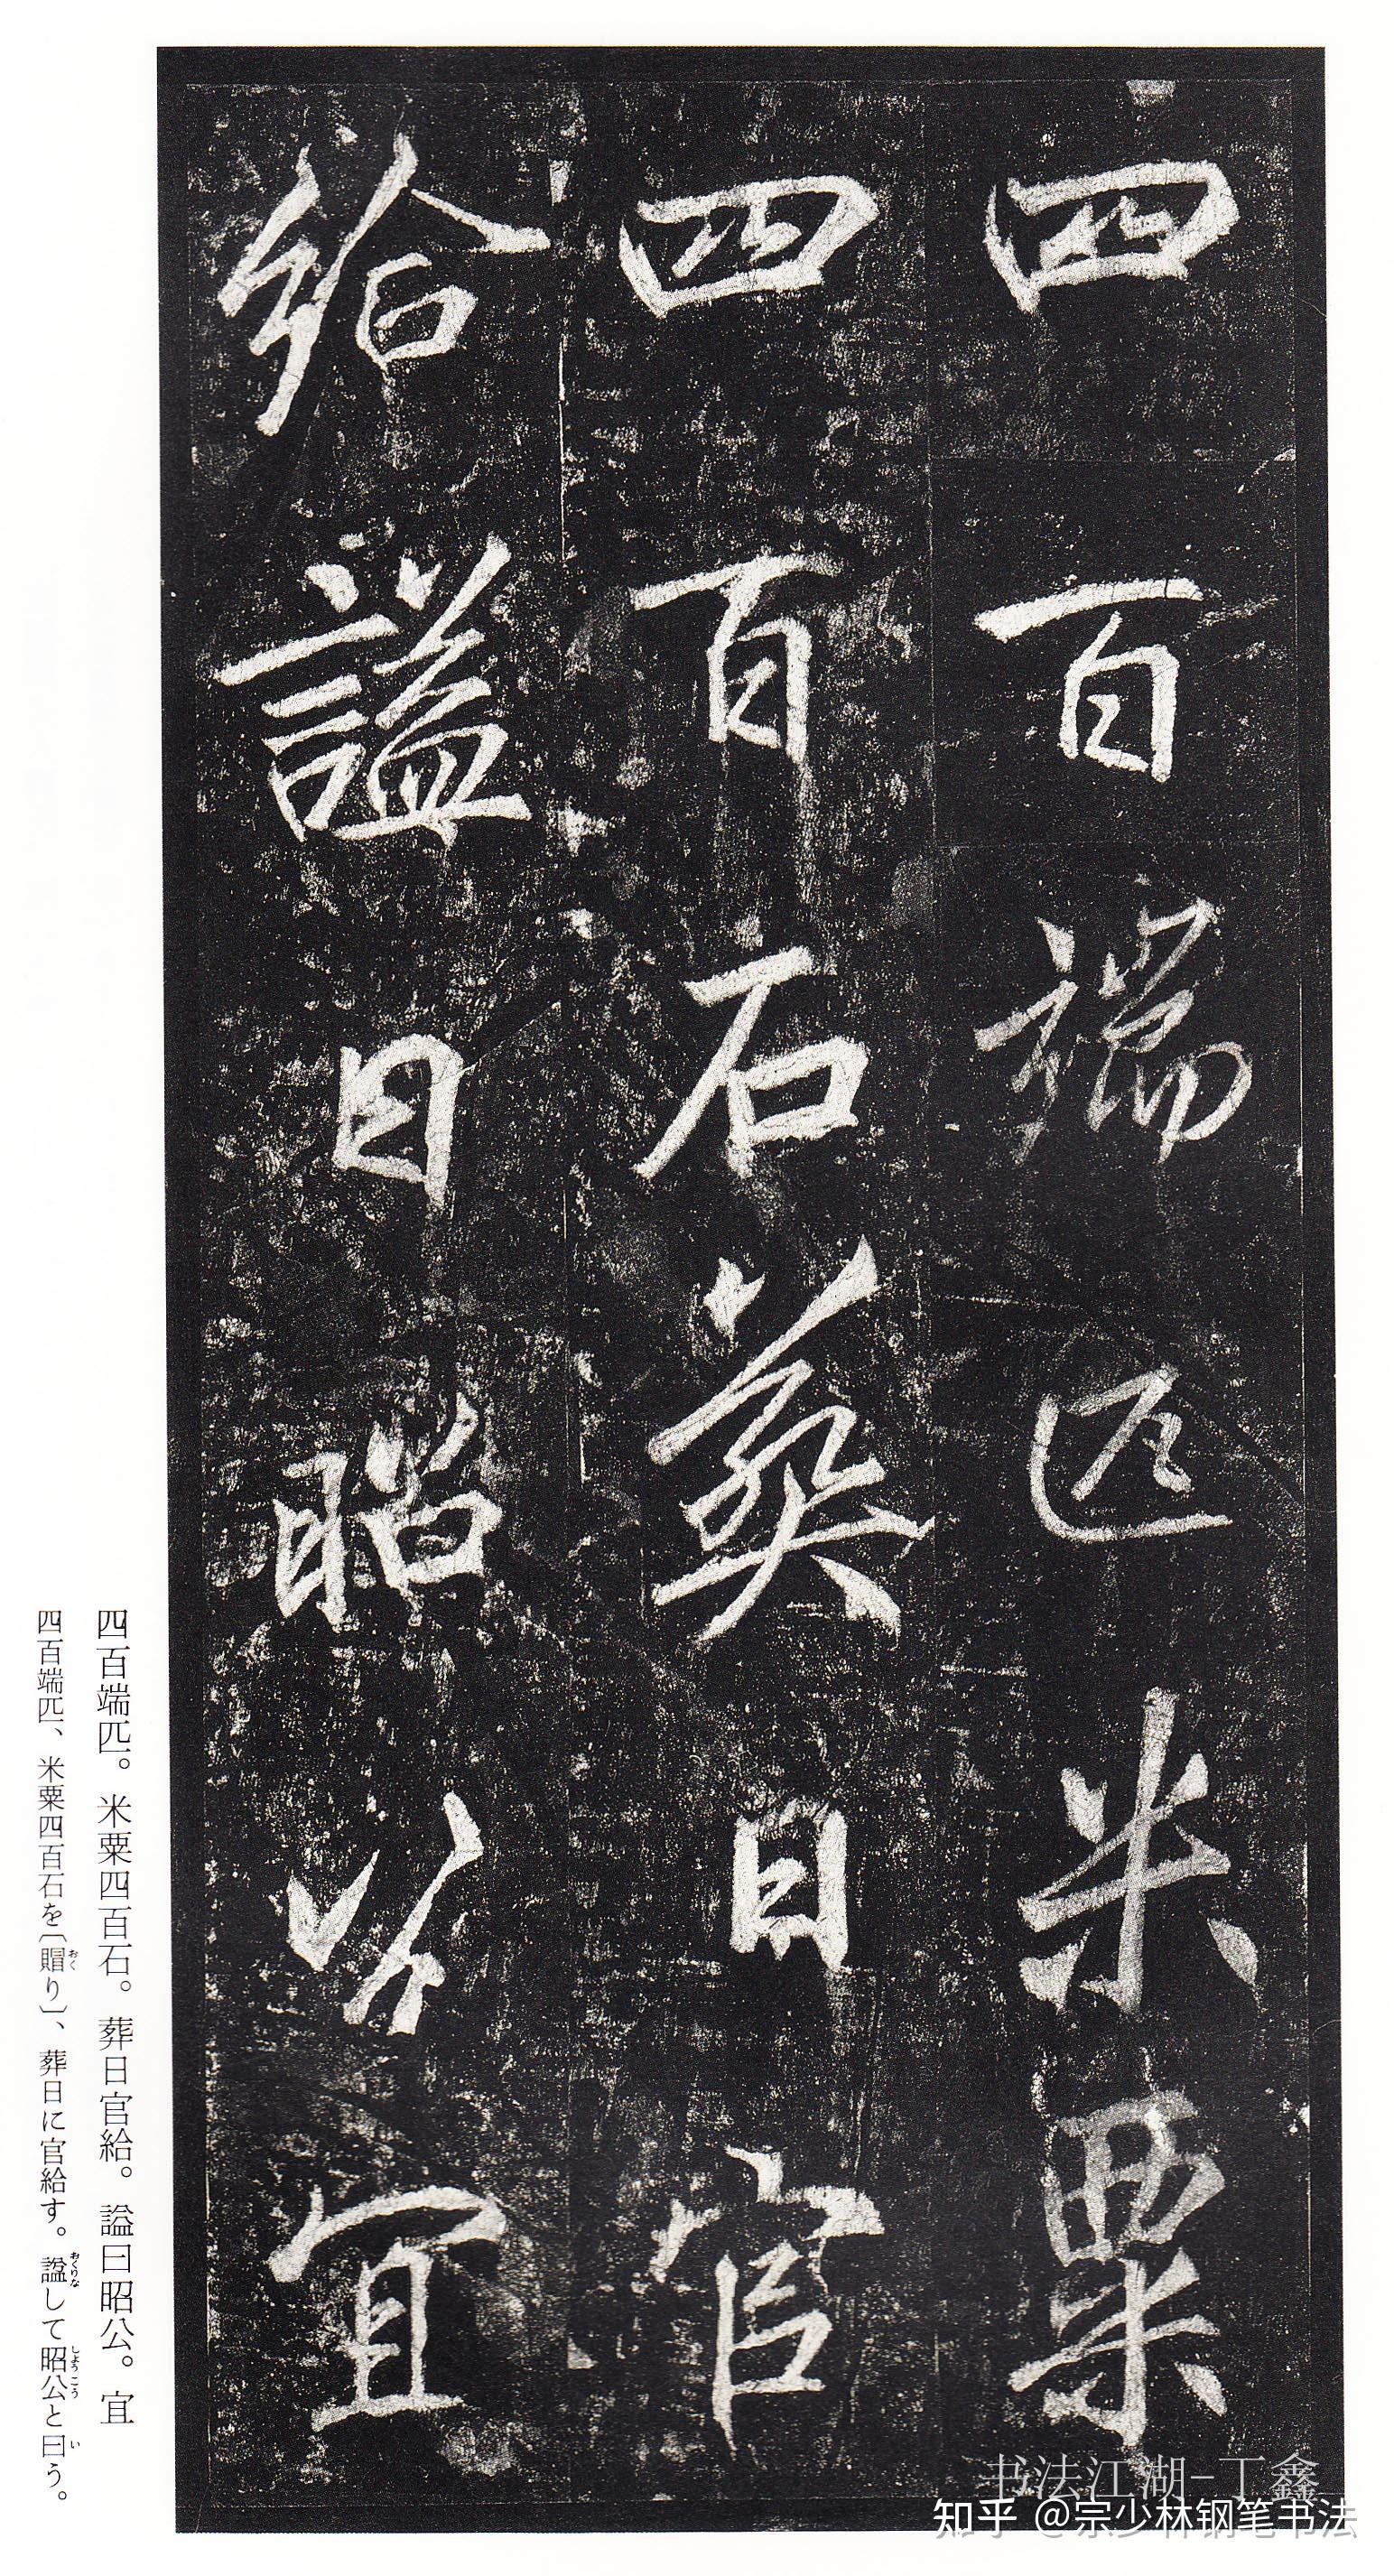 四百端匹米粟
四百石葬日官
給謚曰昭公宜
四百端匹。米粟四百石。葬日官給。謚曰昭公。宜
四百端匹、米粟四百石を〔賵り〕、葬日に官給す。謚して昭公と曰う。
おく
おくりな
しょうこう
い
书法江湖-丁鑫
知乎 @宗少林钢笔书法